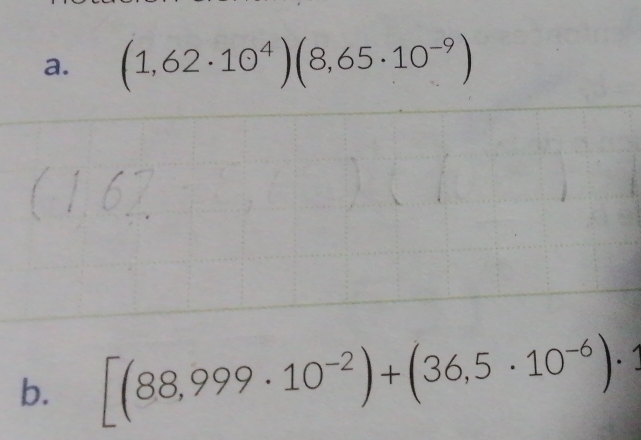 a. (1,62 · 10⁴)(8,65 · 10⁻⁹)
(1,62
b. [(88,999 · 10⁻²) + (36,5 · 10⁻⁶) ·